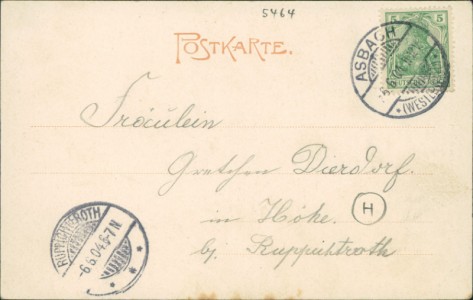 5464
POSTKARTE.
5 5
ASBACH
(WESTERW
Fräulein
Gretchen Dierdorf.
in Höhe. H
bz. Ruppichtroth
RUPPICHTEROTH
-6.6.04.6-7N
* * *